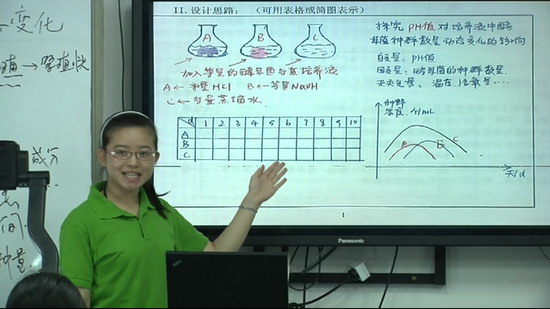 变化
II.设计思路：（可用表格或简图表示）
A B C
加入等量的酵母菌与其培养液
A← 适量HCl B← 等量NaOH
C← 等量蒸馏水
d 1 2 3 4 5 6 7 8 9 10
A
B
C
探究PH值对培养液中酵
母菌种群数量动态变化的影响
自变量：PH值
因变量：酵母菌的种群数量
无关变量：温度
种群
密度 个/mL
A B C
天/d
1
Panasonic
成分
间
种量